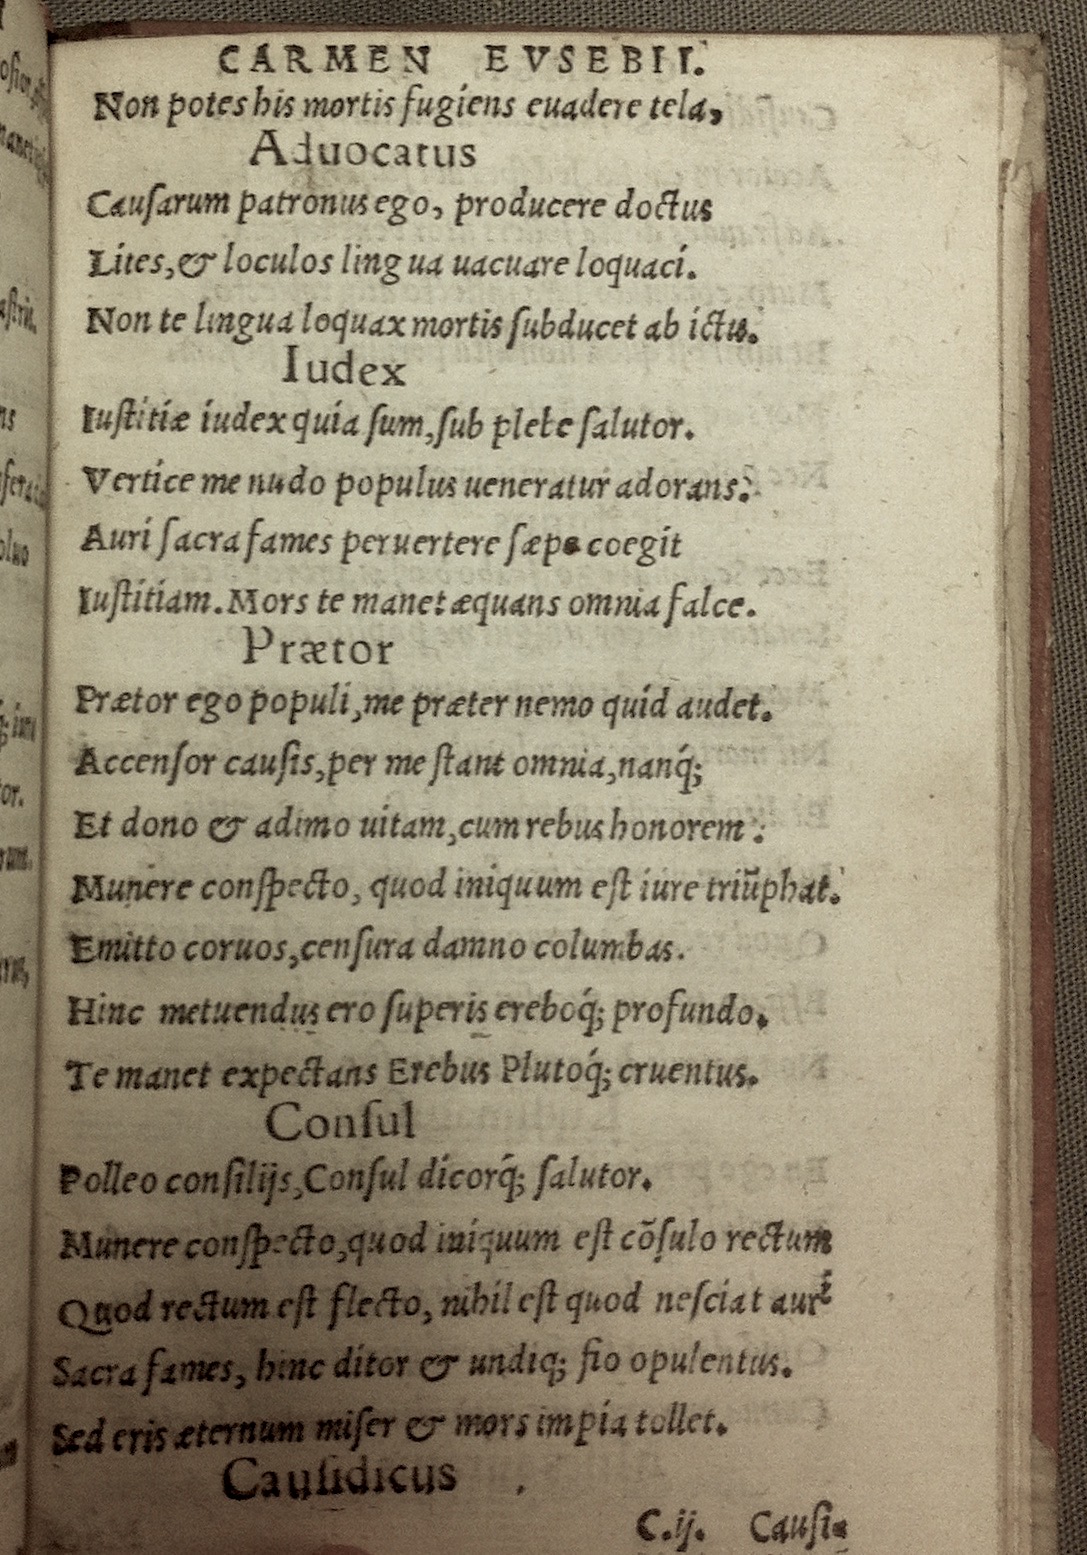 CARMEN EVSEBII.
Non potes his mortis fugiens euadere tela,
Aduocatus
Cauſarum patronus ego, producere doctus
Lites, & loculos lingua uacuare loquaci.
Non te lingua loquax mortis ſubducet ab ictu.
Iudex
Iuſtitiæ iudex quia ſum, ſub plebe ſalutor.
Vertice me nudo populus ueneratur adorans.
Auri ſacra fames peruertere ſæpe coegit
Iuſtitiam. Mors te manet æquans omnia falce.
Prætor
Prætor ego populi, me præter nemo quid audet.
Accenſor cauſis, per me ſtant omnia, nanq́;
Et dono & adimo uitam, cum rebus honorem:
Munere conſpecto, quod iniquum eſt iure triũphat.
Emitto coruos, cenſura damno columbas.
Hinc metuendus ero ſuperis ereboq́; profundo.
Te manet expectans Erebus Plutoq́; cruentus.
Conſul
Polleo conſilijs, Conſul dicorq́; ſalutor.
Munere conſpecto, quod iniquum eſt cõſulo rectum
Quod rectum eſt flecto, nihil eſt quod neſciat auri
Sacra fames, hinc ditor & undiq; fio opulentus.
Sed eris æternum miſer & mors impia tollet.
Cauſidicus
C.ij. Cauſi-